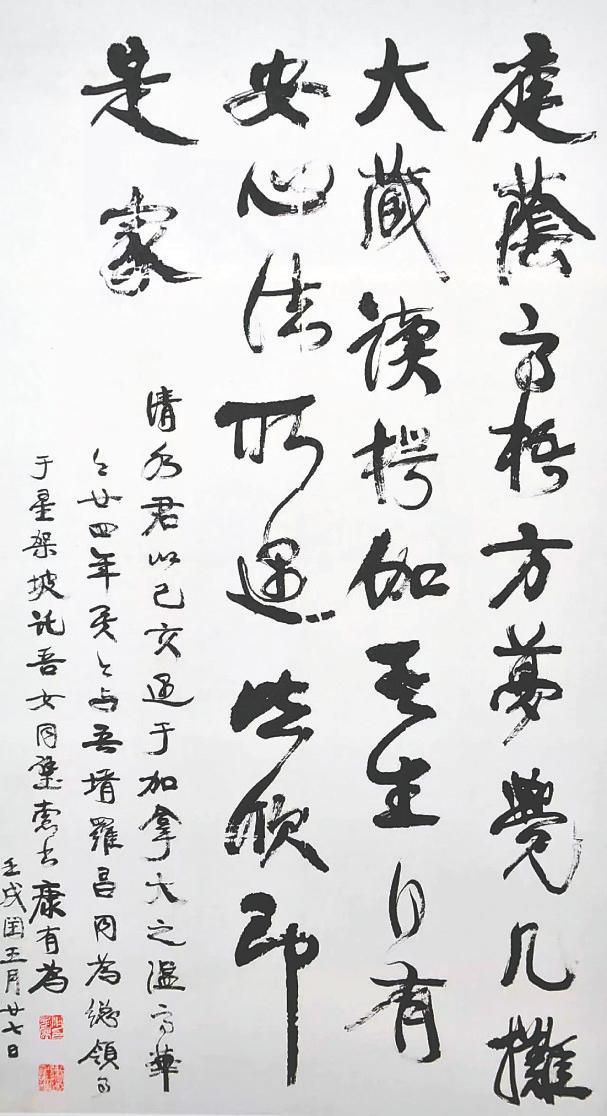 庭蔭高梧方夢覺几攤
大藏讀楞伽吾生自有
安心法所遇皆欣即
是家
清水君以己亥遇于加拿大之溫高華
今廿四年矣今与吾壻羅昌同為總領事
于星架坡託吾女同璧索書康有為
壬戌閏五月廿七日